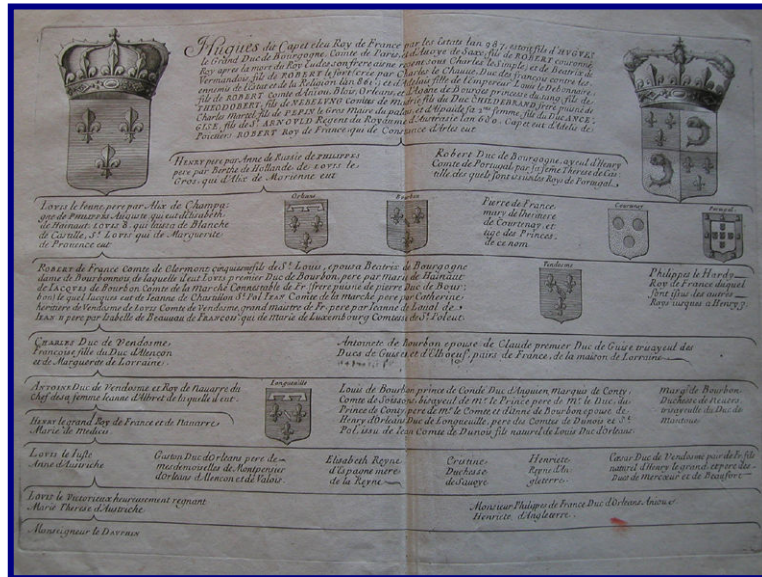 Hugues dit Capet eleu Roy de France par les Estats lan 987. estoit fils d'HUGUES
le Grand Duc de Bourgogne, Comte de Paris, et d'Auoye de Saxe, fils de ROBERT couronné
Roy apres la mort du Roy Eudes son frere aisne regent sous Charles le Simple, et de Beatrix de
Vermandois, fils de ROBERT le fort, cree par Charles le Chauue, Duc des françois contre les
ennemis de l'Estat et de la Religion lan 861, et d'Adelais fille de l'Empereur Louis le Debonnaire,
fils de ROBERT Comte d'Aniou, Blois, Orleans, et d'Agane de Bourges princesse du sang, fils de
THEODOBERT, fils de NEBELVNG comtes de madrie fils du Duc CHILDEBRAND, frere puisné de
Charles Martel, fils de PEPIN le Gros Maire du palais, et d'Alpaide sa 2me femme, fils du Duc ANCE
GISE, fils de St. ARNOVLD Regent du Royaume d'Austrasie lan 680. Capet eut d'Adelis de
Poictiers ROBERT Roy de France, qui de Constance d'Arles eut
HENRY pere par Anne de Russie de PHILIPPES
pere par Berthe de Hollande de LOVIS le
Gros, qui d'Alix de Morienne eut
Robert Duc de Bourgogne, ayeul d'Henry
Comte de Portugal, par sa feme Therese de Cas
tille, des quels sont issus les Roys de Portugal
LOVIS le Ieune, pere par Alix de Champa
gne de PHILIPPES Auguste qui eut d'Elisabeth
de Hainaut, LOVIS 8. qui laissa de Blanche
de Castille, St. LOVIS qui de Marguerite
de Prouence eut
Orleans
Bourbon
Pierre de France
mary de l'heritiere
de Courtenay, et
tige des Princes
de ce nom
Courtenay
Portugal
ROBERT de France Comte de Clermont cinquiesme fils de St. Louis, epousa Beatrix de Bourgogne
dame de Bourbonnois de laquelle il eut Louis premier Duc de Bourbon, pere par marie de Hainaut
de IACQVES de Bourbon Comte de la Marche Connestable de Fr. frere puisné de pierre Duc de Bour
bon, le quel Iacques eut de Ieanne de Chastillon St. Pol IEAN Comte de la marche pere par Catherine
heritiere de Vendosme de LOVIS Comte de Vendosme, grand maistre de Fr. pere par Ieanne de Laual de
IEAN 2 pere par Isabelle de Beauuau de FRANÇOIS que de marie de Luxembourg Comtesse de St. Pol eut
Vendosme
Philippes le Hardy
Roy de France duquel
sont issus des autres
Roys iusques a Henry 3.
CHARLES Duc de Vendosme
Francoise fille du Duc d'Alencon
et de Marguerite de Lorraine
Antoinete de Bourbon epouse de Claude premier Duc de Guise trisayeul des
Ducs de Guise et d'Elboeuf, pairs de France, de la maison de Lorraine
ANTOINE Duc de Vendosme et Roy de Nauarre du
Chef de sa femme Ieanne d'Albret de laquelle il eut
Longueuille
Louis de Bourbon prince de Condé Duc d'Anguien, marquis de Conty,
Comte de Soissons, bisayeul de mr. le Prince pere de mr. le Duc, du
Prince de Conty, pere de mr. le Comte et d'Anne de Bourbon epouse de
Henry d'Orleans Duc de Longueuille, pere des Comtes de Dunois et St.
Pol, issu de Iean Comte de Dunois fils naturel de Louis Duc d'Orleans
Marg. de Bourbon
Duchesse de Neuers
trisayeulle du Duc de
Mantoue
HENRY le grand Roy de France et de Nauarre
Marie de Medicis
LOVIS le Iuste
Anne d'Austriche
Gaston Duc d'Orleans pere de
mesdemoiselles de Montpensier
d'Orleans d'Alencon et de Valois
Elisabeth Reyne
d'Espagne mere
de la Reyne
Cristine
Duchesse
de Sauoye
Henriete
Reyne d'An
gleterre
Cæsar Duc de Vendosme pair de Fr. fils
naturel d'Henry le grand et pere des
Ducs de Mercœur et de Beaufort
LOVIS le Victorieux heureusement regnant
Marie Therese d'Austriche
Monsieur Philippes de France Duc d'Orleans Aniou
Henriete d'Angleterre
Monseigneur le DAVPHIN